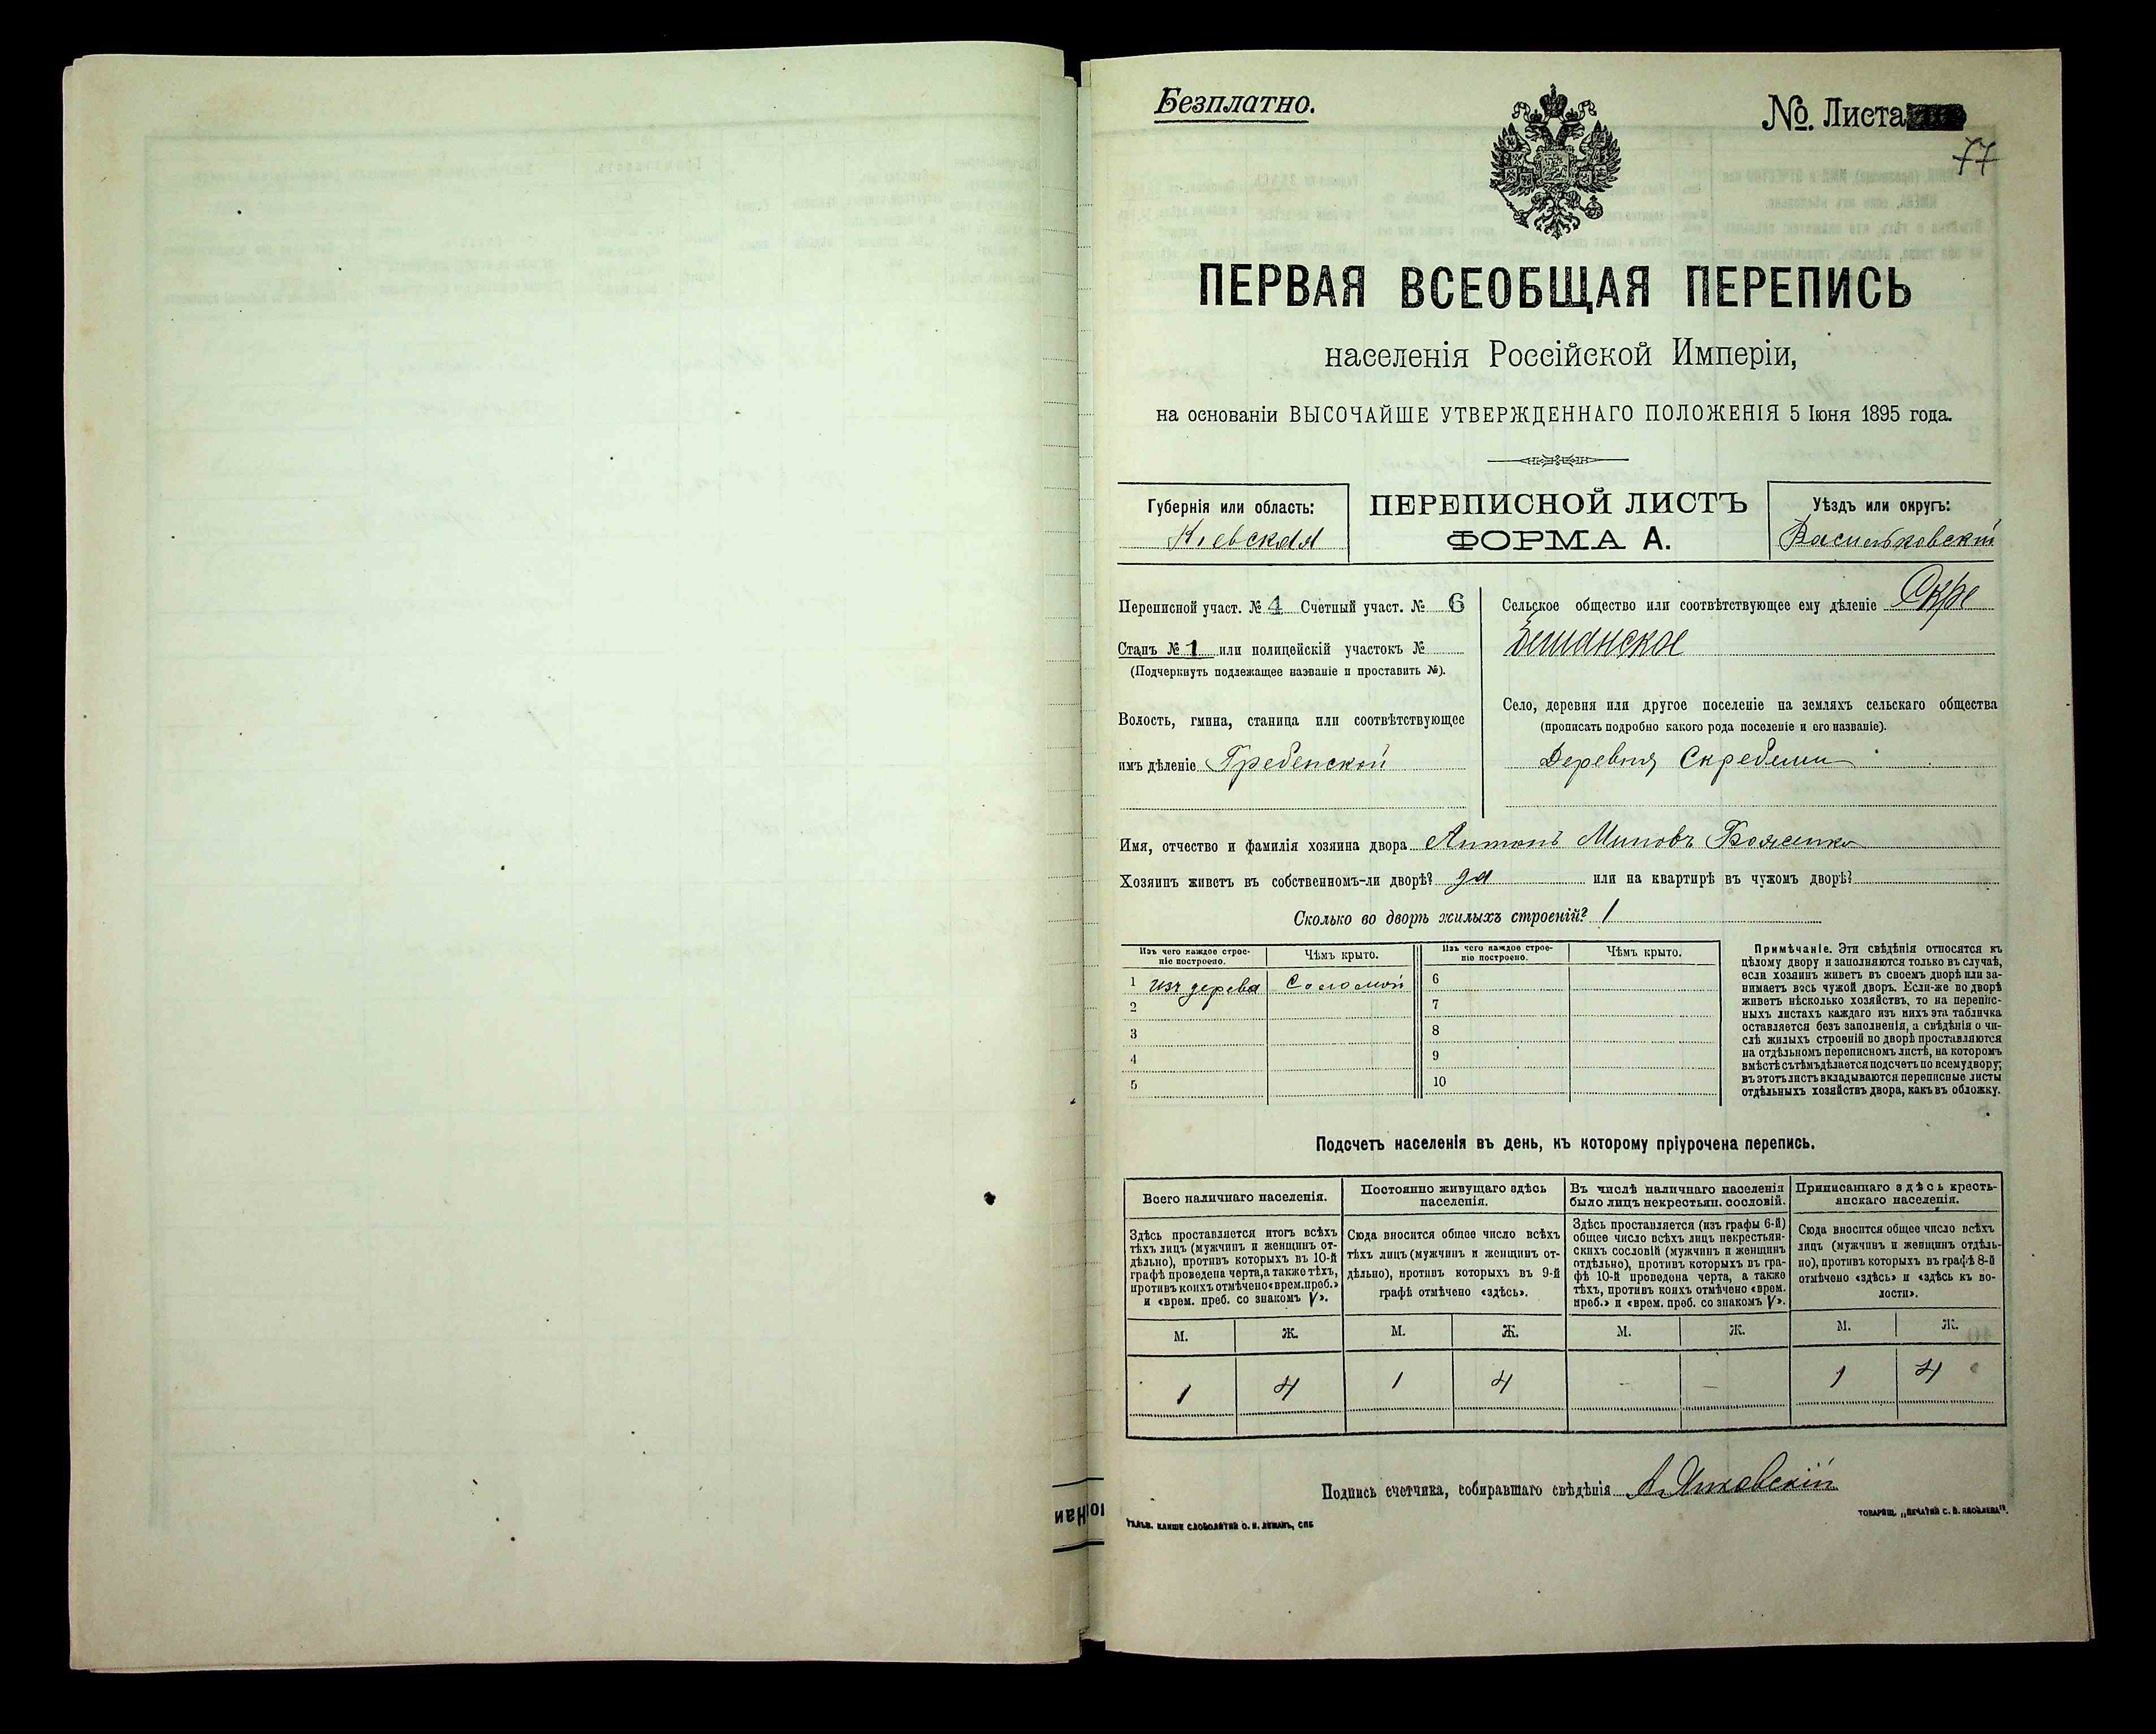 Безплатно.
№. Листа
77
ПЕРВАЯ ВСЕОБЩАЯ ПЕРЕПИСЬ
населенія Россійской Имперіи,
на основаніи ВЫСОЧАЙШЕ УТВЕРЖДЕННАГО ПОЛОЖЕНІЯ 5 Іюня 1895 года.
Губернія или область:
Кіевская
ПЕРЕПИСНОЙ ЛИСТЪ
ФОРМА А.
Уѣздъ или округъ:
Васильковскій
Переписной участ. № 4 Счетный участ. № 6
Станъ № 1 или полицейскій участокъ №
(Подчеркнуть подлежащее названіе и проставить №).
Волость, гмина, станица или соотвѣтствующее
имъ дѣленіе Гребенской
Сельское общество или соотвѣтствующее ему дѣленіе Скре
Бешанское
Село, деревня или другое поселеніе на земляхъ сельскаго общества
(прописать подробно какого рода поселеніе и его названіе).
Деревня Скребеши
Имя, отчество и фамилія хозяина двора Антонъ Миновъ
Хозяинъ живетъ въ собственномъ-ли дворѣ? да или на квартирѣ въ чужомъ дворѣ?
Сколько во дворѣ жилыхъ строеній? 1
Изъ чего каждое строе-
ніе построено.
Чѣмъ крыто.
Изъ чего каждое строе-
ніе построено.
Чѣмъ крыто.
1 изъ дерева Соломой 6
2 7
3 8
4 9
5 10
Примѣчаніе. Эти свѣдѣнія относятся къ
цѣлому двору и заполняются только въ случаѣ,
если хозяинъ живетъ въ своемъ дворѣ или за-
нимаетъ весь чужой дворъ. Если-же во дворѣ
живетъ нѣсколько хозяйствъ, то на перепис-
ныхъ листахъ каждаго изъ нихъ эта табличка
оставляется безъ заполненія, а свѣдѣнія о чи-
слѣ жилыхъ строеній во дворѣ проставляются
на отдѣльномъ переписномъ листѣ, на которомъ
вмѣстѣ съ тѣмъ дѣлается подсчетъ по всему двору;
въ этотъ листъ вкладываются переписные листы
отдѣльныхъ хозяйствъ двора, какъ въ обложку.
Подсчетъ населенія въ день, къ которому пріурочена перепись.
Всего наличнаго населенія.
Постоянно живущаго здѣсь
населенія.
Въ числѣ наличнаго населенія
было лицъ некрестьян. сословій.
Приписаннаго здѣсь кресть-
янскаго населенія.
Здѣсь проставляется итогъ всѣхъ
тѣхъ лицъ (мужчинъ и женщинъ от-
дѣльно), противъ которыхъ въ 10-й
графѣ проведена черта, а также тѣхъ,
противъ коихъ отмѣчено «врем. преб.»
и «врем. преб. со знакомъ V».
Сюда вносится общее число всѣхъ
тѣхъ лицъ (мужчинъ и женщинъ от-
дѣльно), противъ которыхъ въ 9-й
графѣ отмѣчено «здѣсь».
Здѣсь проставляется (изъ графы 6-й)
общее число всѣхъ лицъ некрестьян-
скихъ сословій (мужчинъ и женщинъ
отдѣльно), противъ которыхъ въ гра-
фѣ 10-й проведена черта, а также
тѣхъ, противъ коихъ отмѣчено «врем.
преб.» и «врем. преб. со знакомъ V».
Сюда вносится общее число всѣхъ
лицъ (мужчинъ и женщинъ отдѣль-
но), противъ которыхъ въ графѣ 8-й
отмѣчено «здѣсь» и «здѣсь къ во-
лости».
М. Ж. М. Ж. М. Ж. М. Ж.
1 4 1 4 – – 1 4
Подпись счетчика, собиравшаго свѣдѣнія
ТОВАРИЩ. „ПЕЧАТНЯ С. П. ЯКОВЛЕВА".